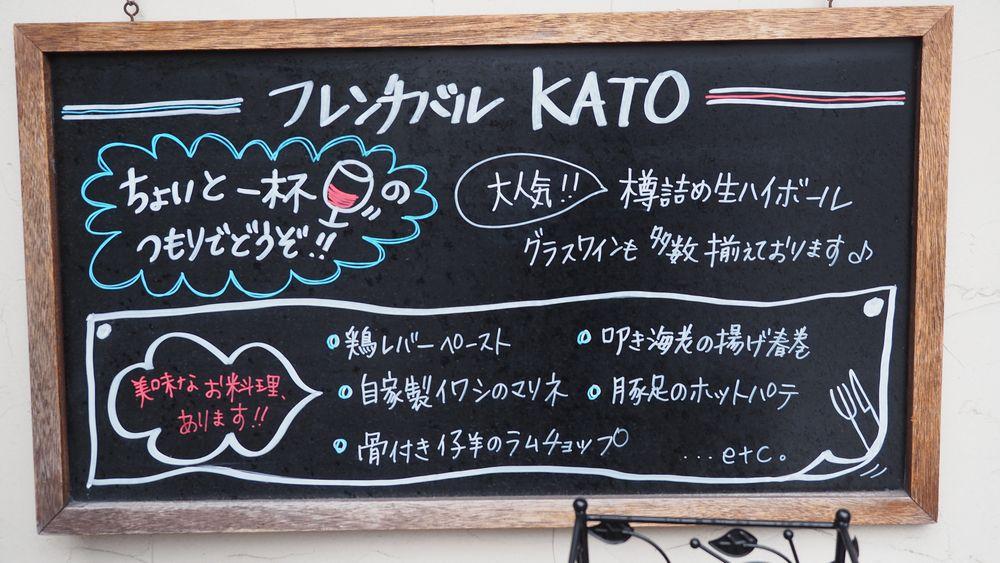 フレンチバル KATO
ちょいと一杯の
つもりでどうぞ!!
大人気!! 樽詰め生ハイボール
グラスワインも 多数 揃えております♪
美味なお料理、
あります!!
鶏レバーペースト
自家製イワシのマリネ
骨付き仔羊のラムチョップ
叩き海老の揚げ春巻
豚足のホットパテ
...etc。